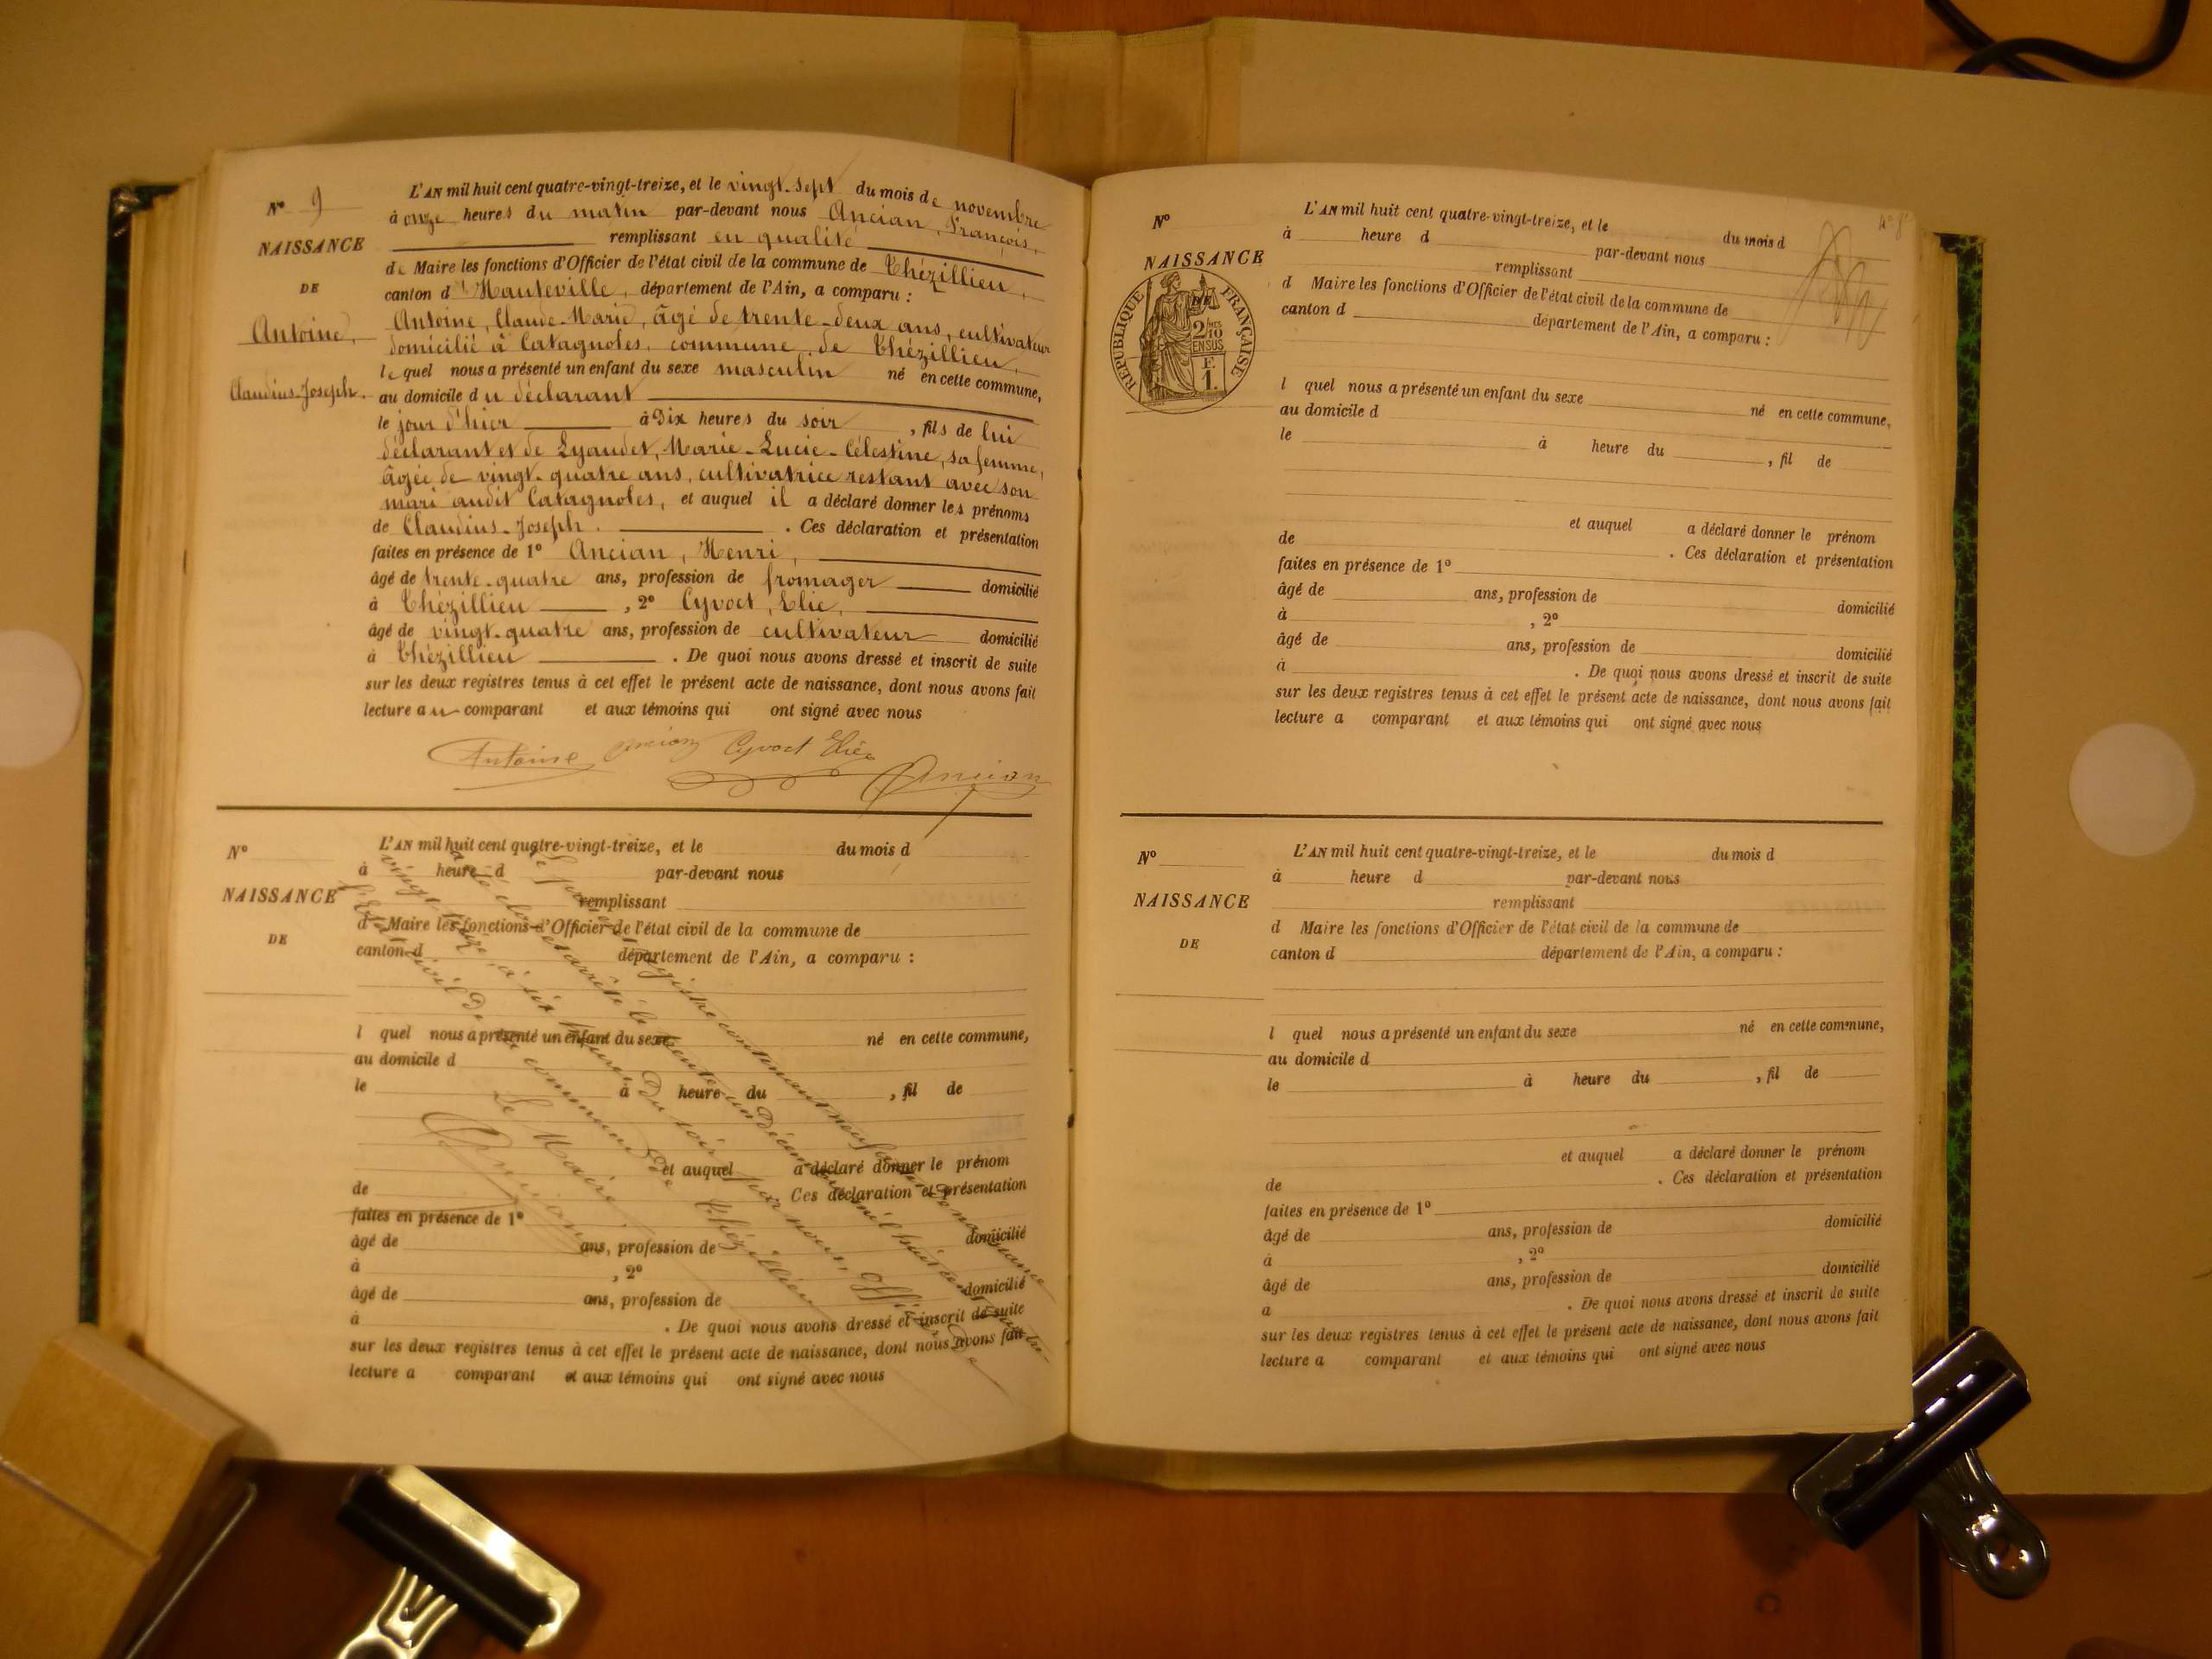 N° 9
NAISSANCE
DE
Antoine,
Claudius-Joseph.
L'AN mil huit cent quatre-vingt-treize, et le vingt-sept du mois de novembre
à onze heures du matin par-devant nous Ancian, François,
remplissant en qualité
de Maire les fonctions d'Officier de l'état civil de la commune de Thézillieu,
canton d'Hauteville, département de l'Ain, a comparu :
Antoine, Claude-Marie, âgé de trente-deux ans, cultivateur
domicilié à Catagnoles, commune de Thézillieu,
lequel nous a présenté un enfant du sexe masculin né en cette commune,
au domicile du déclarant
le jour d'hier à Dix heures du soir, fils de lui
déclarant et de Lyaudet, Marie-Lucie-Célestine, sa femme,
âgée de vingt-quatre ans, cultivatrice restant avec son
mari audit Catagnoles, et auquel il a déclaré donner les prénoms
de Claudius-Joseph. . Ces déclaration et présentation
faites en présence de 1° Ancian, Henri,
âgé de trente-quatre ans, profession de fromager domicilié
à Thézillieu , 2° Cyvoct, Elie,
âgé de vingt-quatre ans, profession de cultivateur domicilié
à Thézillieu . De quoi nous avons dressé et inscrit de suite
sur les deux registres tenus à cet effet le présent acte de naissance, dont nous avons fait
lecture au comparant et aux témoins qui ont signé avec nous
Antoine Ancian Cyvoct Elie
Ancian
N°
NAISSANCE
DE
L'AN mil huit cent quatre-vingt-treize, et le du mois d
à heure d par-devant nous
remplissant
d Maire les fonctions d'Officier de l'état civil de la commune de
canton d département de l'Ain, a comparu :
l quel nous a présenté un enfant du sexe né en cette commune,
au domicile d
le à heure du , fil de
et auquel a déclaré donner le prénom
de Ces déclaration et présentation
faites en présence de 1°
âgé de ans, profession de domicilié
à , 2°
âgé de ans, profession de domicilié
à . De quoi nous avons dressé et inscrit de suite
sur les deux registres tenus à cet effet le présent acte de naissance, dont nous avons fait
lecture a comparant et aux témoins qui ont signé avec nous
Le présent registre contenant neuf actes de naissance
a été clos et arrêté le trente un Décembre mil huit cent quatre-
vingt-treize, à six heures du soir par nous, Officier de
l'Etat civil de la commune de Thézillieu
Le Maire
Ancian
N°
NAISSANCE
DE
RÉPUBLIQUE FRANÇAISE
2/10
EN SUS
F.
1.
L'AN mil huit cent quatre-vingt-treize, et le du mois d
à heure d par-devant nous
remplissant
d Maire les fonctions d'Officier de l'état civil de la commune de
canton d département de l'Ain, a comparu :
l quel nous a présenté un enfant du sexe né en cette commune,
au domicile d
le à heure du , fil de
et auquel a déclaré donner le prénom
de . Ces déclaration et présentation
faites en présence de 1°
âgé de ans, profession de domicilié
à , 2°
âgé de ans, profession de domicilié
à . De quoi nous avons dressé et inscrit de suite
sur les deux registres tenus à cet effet le présent acte de naissance, dont nous avons fait
lecture a comparant et aux témoins qui ont signé avec nous
N°
NAISSANCE
DE
L'AN mil huit cent quatre-vingt-treize, et le du mois d
à heure d par-devant nous
remplissant
d Maire les fonctions d'Officier de l'état civil de la commune de
canton d département de l'Ain, a comparu :
l quel nous a présenté un enfant du sexe né en cette commune,
au domicile d
le à heure du , fil de
et auquel a déclaré donner le prénom
de . Ces déclaration et présentation
faites en présence de 1°
âgé de ans, profession de domicilié
à , 2°
âgé de ans, profession de domicilié
a . De quoi nous avons dressé et inscrit de suite
sur les deux registres tenus à cet effet le présent acte de naissance, dont nous avons fait
lecture a comparant et aux témoins qui ont signé avec nous